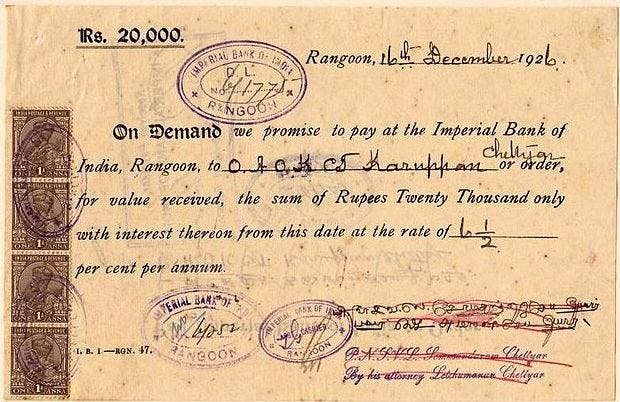 Rs. 20,000.
IMPERIAL BANK OF INDIA
D. L.
No.
RANGOON
Rangoon, 16th December 1926.
On Demand we promise to pay at the Imperial Bank of
India, Rangoon, to O.A.O.K. CT Karuppan Chettyar or order,
for value received, the sum of Rupees Twenty Thousand only
with interest thereon from this date at the rate of 6 1/2
per cent per annum.
INDIA POSTAGE & REVENUE
1A
ONE ANNA
INDIA POSTAGE & REVENUE
1A
ONE ANNA
INDIA POSTAGE & REVENUE
1A
ONE ANNA
INDIA POSTAGE & REVENUE
1A
ONE ANNA
IMPERIAL BANK OF
RANGOON
IMPERIAL BANK OF INDIA
CASHIER
RANGOON
I. B. 1—RGN. 47.
P.N.S.V.L. Somasundaram Chettyar
By his attorney Letchumanan Chettyar